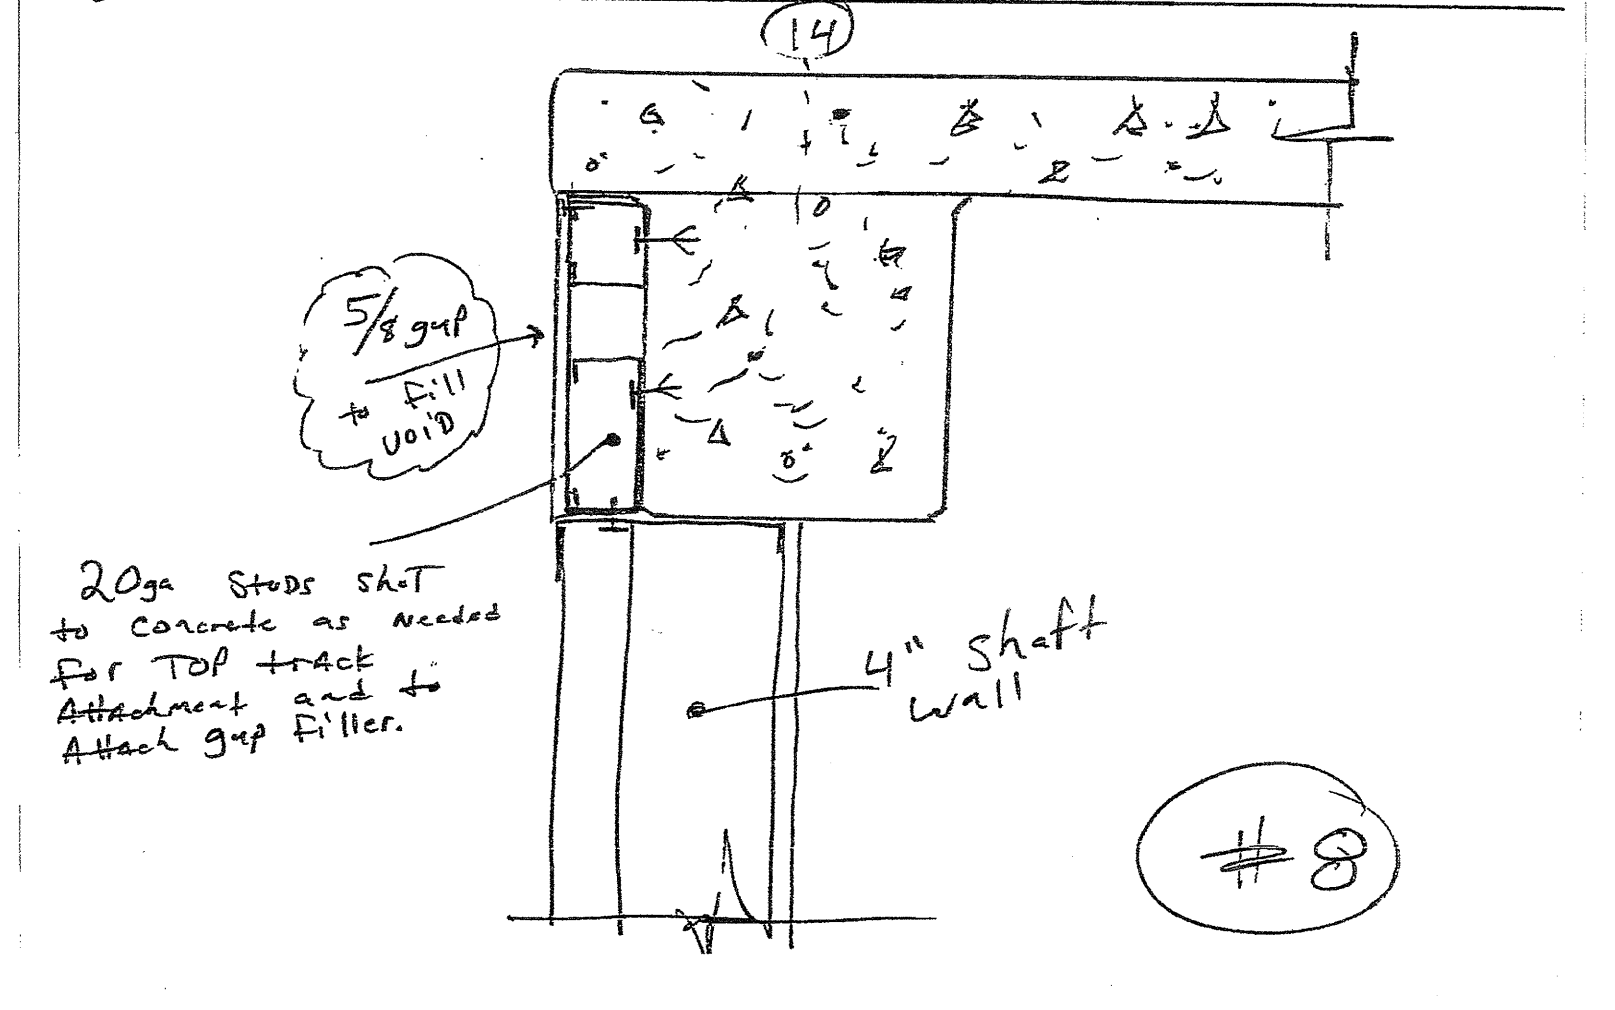 14
5/8 gyp
to fill
void
20ga studs shot
to concrete as needed
for top track
Attachment and to
Attach gyp filler.
4" shaft
wall
# 8